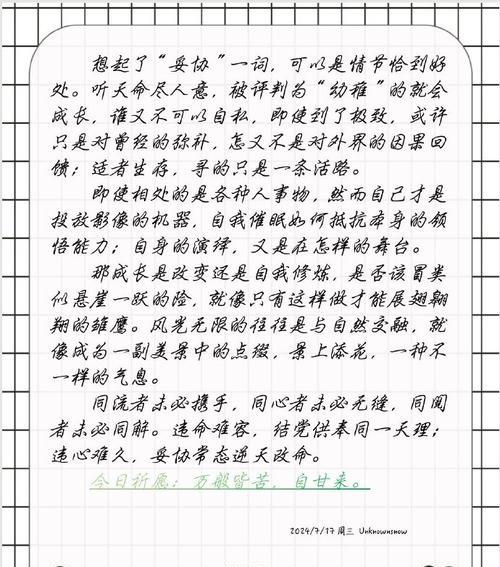 想起了“妥协”一词，可以是情节恰到好
处。听天命尽人意，被评判为“幼稚”的就会
成长，谁又不可以自私，即使到了极致，或许
只是对曾经的弥补，怎又不是对外界的因果回
馈；适者生存，寻的只是一条活路。
即使相处的是各种人事物，然而自己才是
投放影像的机器，自我催眠如何抵抗本身的领
悟能力；自身的演绎，又是在怎样的舞台。
那成长是改变还是自我修炼，是否该冒类
似悬崖一跃的险，就像只有这样做才能展翅翱
翔的雏鹰。风光无限的往往是与自然交融，就
像成为一副美景中的点缀，景上添花，一种不
一样的气息。
同流者未必携手，同心者未必无缝，同阅
者未必同解。违命难容，结党供奉同一天理；
违心难久，妥协常态逆天改命。
今日祈愿：万般皆苦，自甘来。
2024/7/17 周三 Unknownsnow